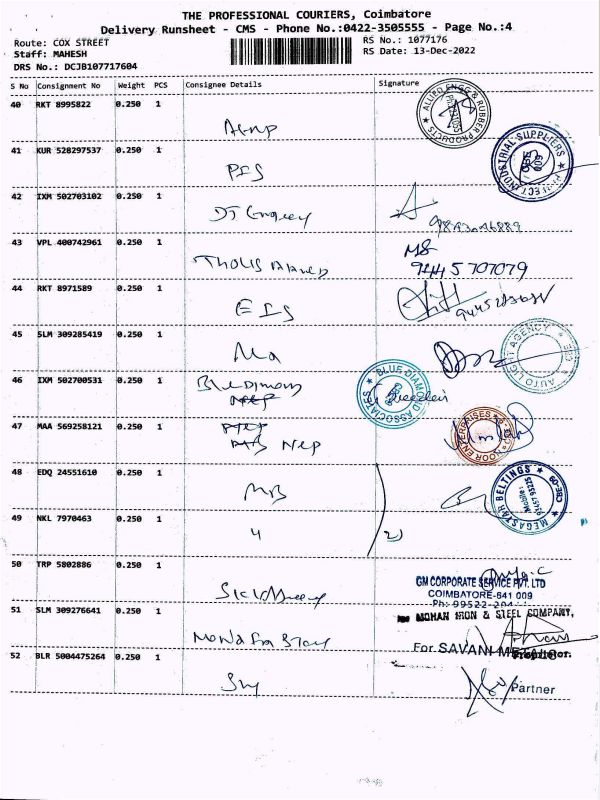 THE PROFESSIONAL COURIERS, Coimbatore
Delivery Runsheet - CMS - Phone No.:0422-3505555 - Page No.:4
Route: COX STREET
RS No.: 1077176
Staff: MAHESH
RS Date: 13-Dec-2022
DRS No.: DCJB107717604
S No Consignment No Weight PCS Consignee Details Signature
40 RKT 8995822 0.250 1
ALLIED ENGG & RUBBER PRODUCTS
41 KUR 528297537 0.250 1
PROJECT INDUSTRIAL SUPPLIERS
PIS
42 IXM 502703102 0.250 1
43 VPL 400742961 0.250 1
MS
94457 07079
44 RKT 8971589 0.250 1
EIS
45 SLM 309285419 0.250 1
AUTO LIGHT AGENCY CBE
46 IXM 502700531 0.250 1
BLUE DIAMOND ASSOCIATES
47 MAA 569258121 0.250 1
ENTERPRISES
Nep
48 EDQ 24551610 0.250 1
MEGASTAR BELTINGS CBE-09
Mobile:
MB
49 NKL 7970463 0.250 1
4
2)
50 TRP 5802886 0.250 1
GM CORPORATE SERVICE PVT. LTD
COIMBATORE-641 009
Ph: 99522-204
51 SLM 309276641 0.250 1
MOHAN IRON & STEEL COMPANY,
For SAVANI METALS
Proprietor.
52 BLR 5004475264 0.250 1
Partner